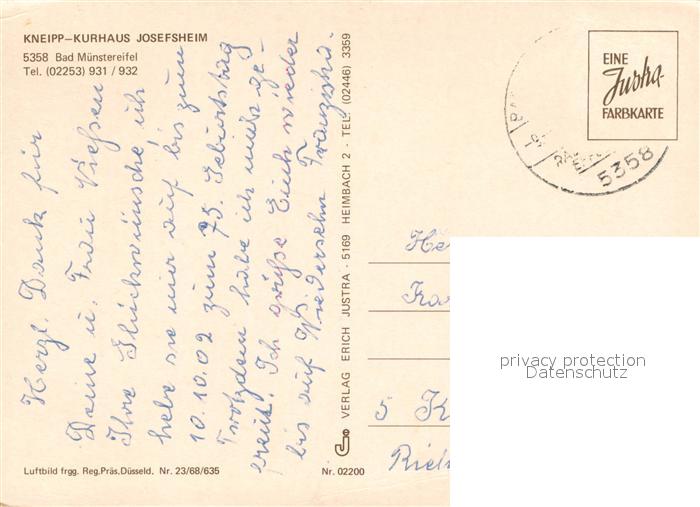 KNEIPP-KURHAUS JOSEFSHEIM
5358 Bad Münstereifel
Tel. (02253) 931 / 932
Herzl. Dank für
Deine u. Frau
Ihre Glückwünsche, ich
hebe sie mir auf bis zum
10.10.02 zum 75. Geburtstag
Trotzdem habe ich mich ge-
freut. Ich grüße Euch wieder
bis auf Wiedersehn Franziska.
VERLAG ERICH JUSTRA - 5169 HEIMBACH 2 - TEL. (02446) 3359
Luftbild frgg. Reg.Präs.Düsseld. Nr. 23/68/635
Nr. 02200
EINE
Justra-
FARBKARTE
5358
He
Ka
K
Rieh
privacy protection
Datenschutz